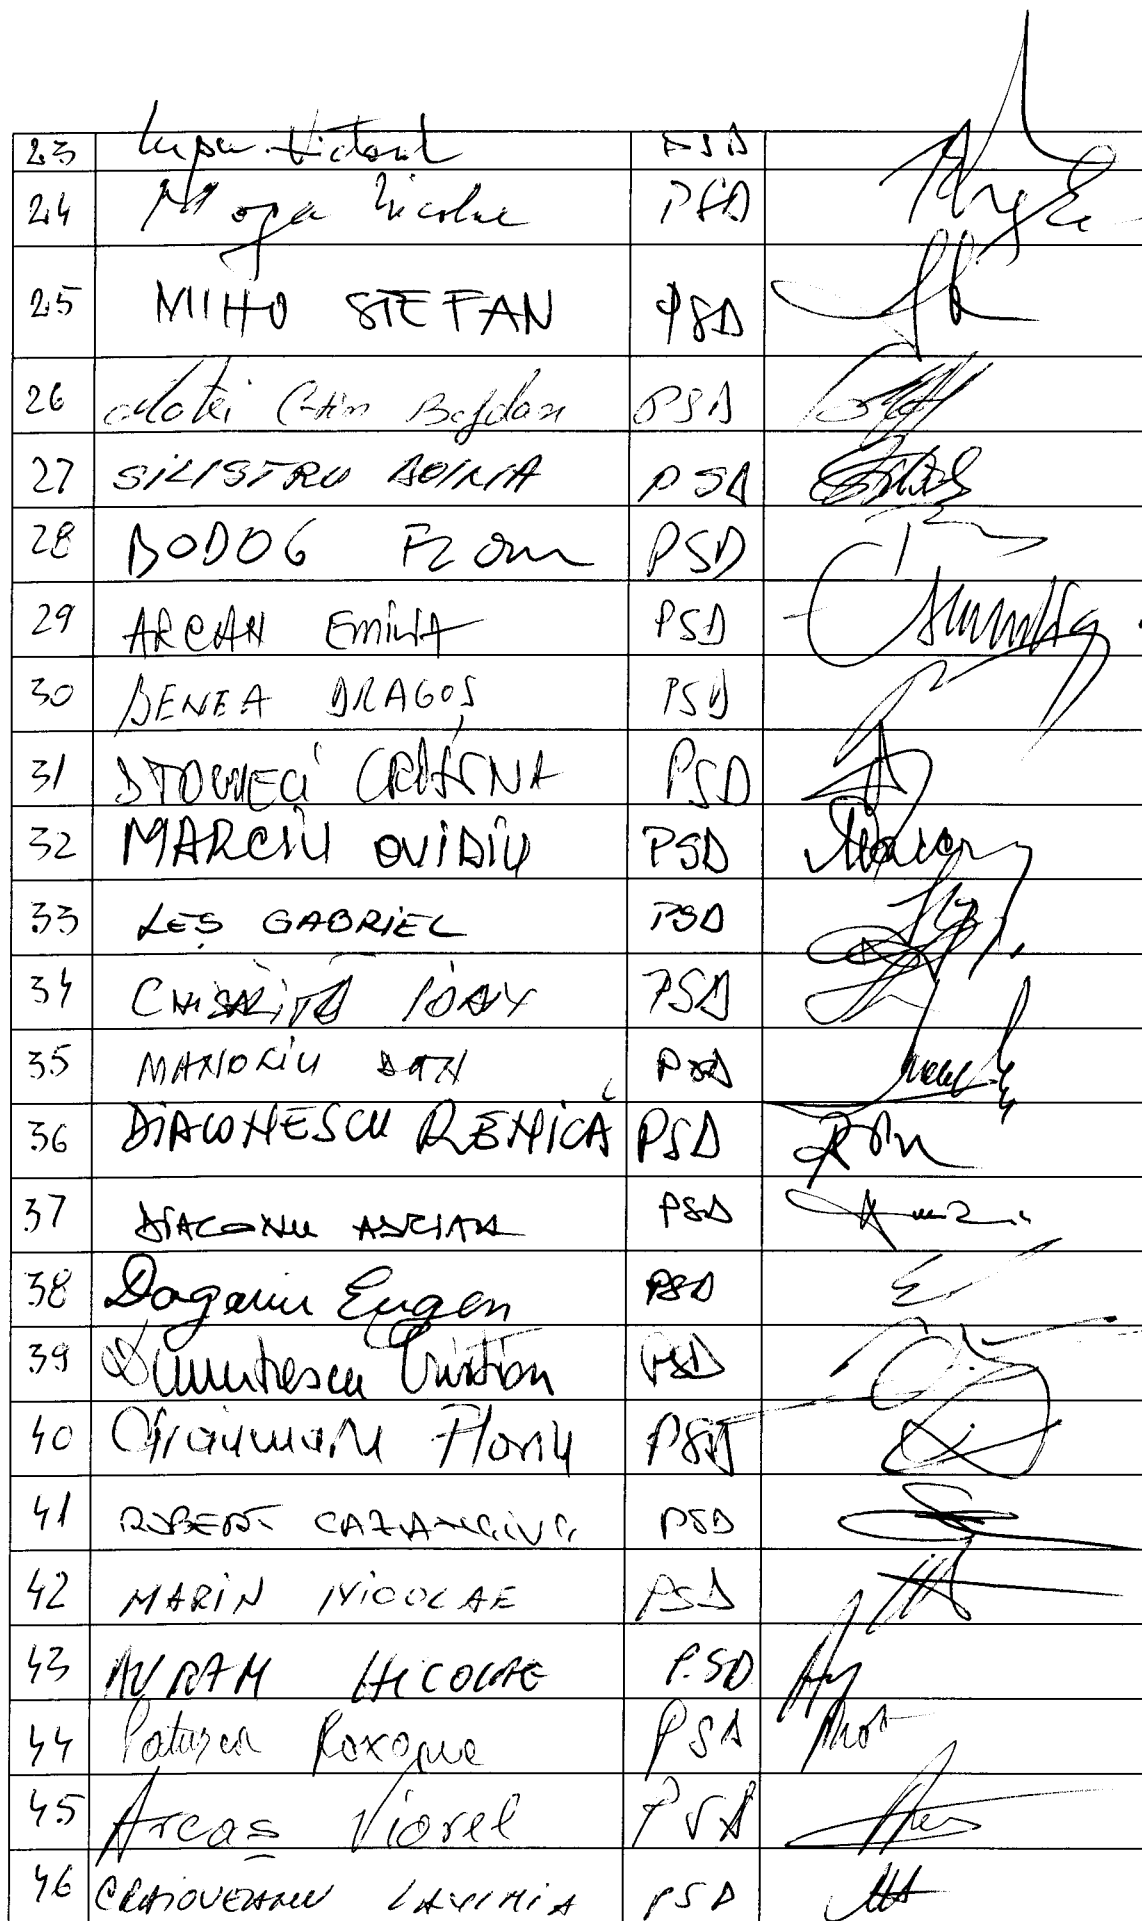 23 Lupu Victoral PSD
24 Moga Nicolae PSD
25 MIHO STEFAN PSD
26 Matei C-tin Bogdan PSD
27 SILISTRU DOINA PSD
28 BODOG Florin PSD
29 ARCAN EmiliA PSD
30 BENEA DRAGOȘ PSD
31 PSD
32 MARCIU OVIDIU PSD
33 LEȘ GABRIEL PSD
34 CHISĂLIȚĂ IOAN PSD
35 MANOLIU DAN PSD
36 DIACONESCU RENICĂ PSD
37 DIACONU ADRIAN PSD
38 Dogariu Eugen PSD
39 Dumitrescu Cristian PSD
40 Florin PSD
41 ROBERT CAZANCIUC PSD
42 MARIN NICOLAE PSD
43 AVRAM NICOLAE P.SD
44 Paturca Roxana PSD
45 Arcaș Viorel PSD
46 CRAIOVEANU LAVINIA PSD